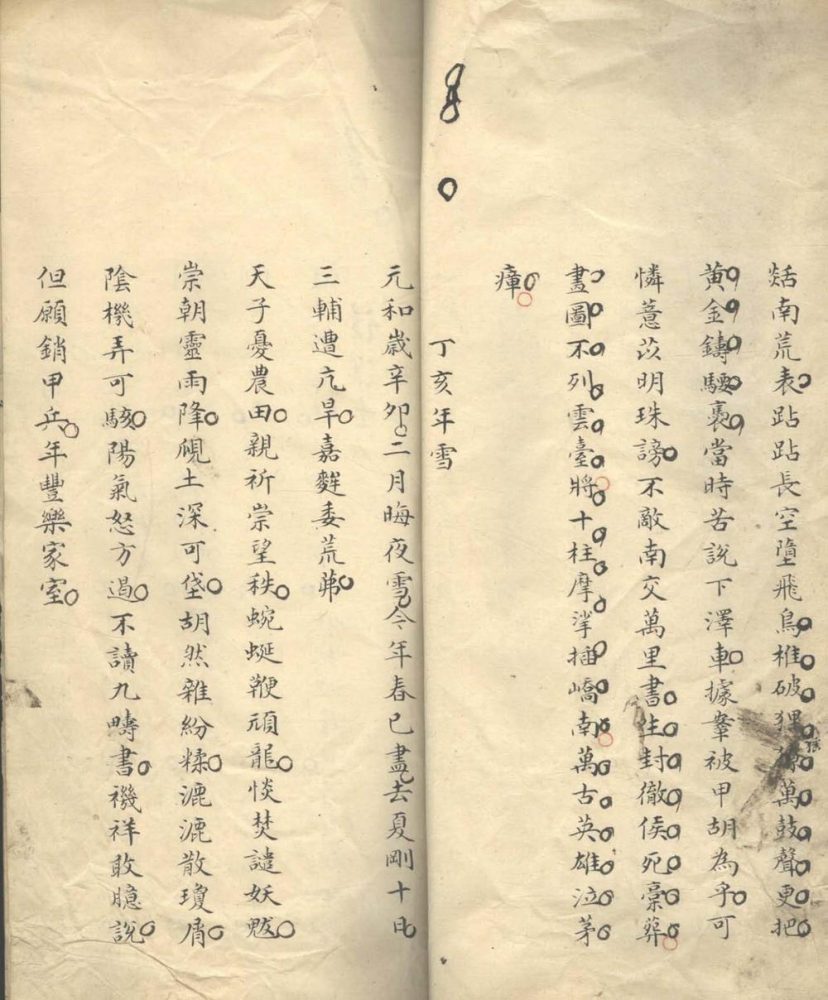 燄南荒表跕跕長空墮飛鳥椎破狸獠萬鼓聲更把
黃金鑄騕褭當時苦說下澤車據鞌被甲胡為乎可
憐薏苡明珠謗不敵南交萬里書生封徹侯死槀葬
畫圖不列雲臺將十柱摩挲插嶠南萬古英雄泣茅
瘴
丁亥年雪
元和歲辛卯二月晦夜雪今年春已盡去夏剛十日
三輔遭亢旱嘉麰委荒茀
天子憂農田親祈崇望秩蜿蜒鞭頑龍惔焚譴妖魃
崇朝靈雨降覛土深可垡胡然雜紛糅漉漉散瓊屑
陰機弄可駭陽氣怒方遏不讀九疇書禨祥敢臆說
但願銷甲兵年豐樂家室